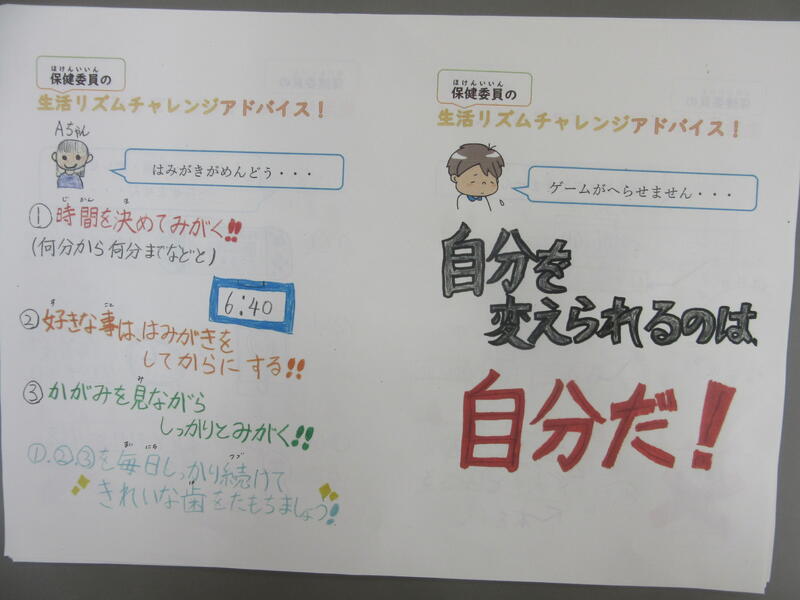 ほけんいいん
保健委員の
生活リズムチャレンジアドバイス！
Aちゃん
はみがきがめんどう・・・
じかん き
①時間を決めてみがく!!
(何分から何分までなどと)
6:40
す こと
②好きな事は、はみがきを
してからにする!!
み
③かがみを見ながら
しっかりとみがく!!
まいにち つづ
①.②.③を毎日しっかり続けて
は
きれいな歯をたもちましょう!
ほけんいいん
保健委員の
生活リズムチャレンジアドバイス！
ゲームがへらせません・・・
自分を
変えられるのは、
自分だ！